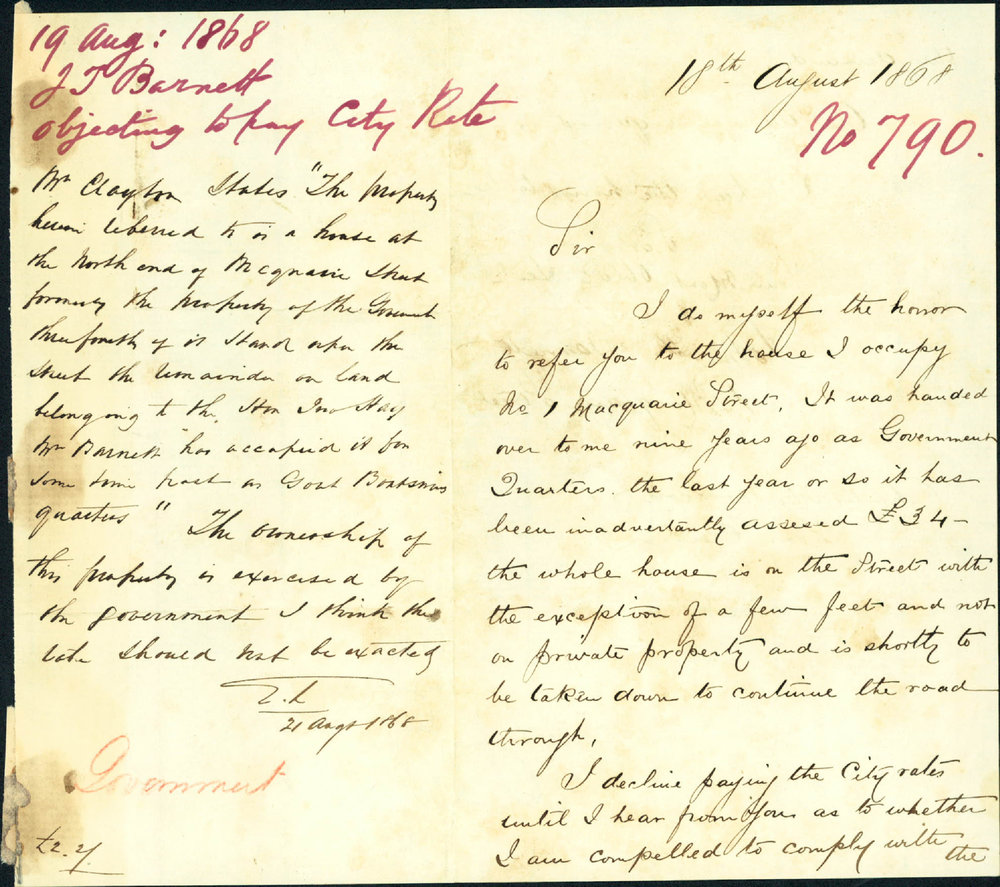 19 Aug: 1868
J T Barnett
objecting to pay City Rate
Mr Clayton States "The property
herein referred to is a house at
the North end of Macquarie Street
formerly the property of the Goverment
three fourths of it Stand upon the
Street the remainder on land
belonging to the Hon Jno Hay
Mr Barnett has occupied it for
some time past as Govt Boatswains
quarters" The ownership of
this property is exercised by
the government I think the
rate should not be exacted
21 Augt 1868
Government
£2. 2/.
18th August 1868
No 790.
Sir
I do myself the honor
to refer you to the house I occupy
No 1 Macquarie Street. It was handed
over to me nine years ago as Government
Quarters. the last year or so it has
been inadvertantly assesed £34 –
the whole house is on the Street with
the exception of a few feet and not
on private property and is shortly to
be taken down to continue the road
through,
I decline paying the City rates
until I hear from you as to whether
I am compelled to comply with the